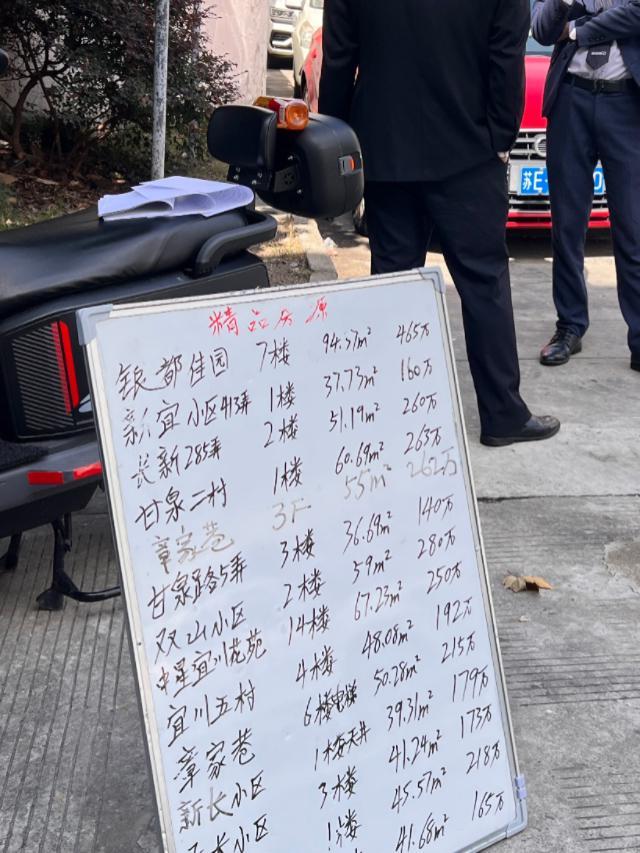 苏E
精品房源
银都佳园 7楼 94.37m² 465万
新宜小区413弄 1楼 37.73m² 160万
长新285弄 2楼 51.19m² 260万
甘泉二村 1楼 60.69m² 263万
章家巷 3F 55m² 262万
甘泉路 弄 3楼 36.69m² 140万
双山小区 2楼 59m² 280万
中星宜川 苑 14楼 67.23m² 250万
宜川五村 4楼 48.08m² 192万
章家巷 6楼电梯 50.28m² 215万
新长小区 1楼天井 39.31m² 179万
长小区 3楼 41.24m² 173万
1楼 45.57m² 218万
41.68m² 165万